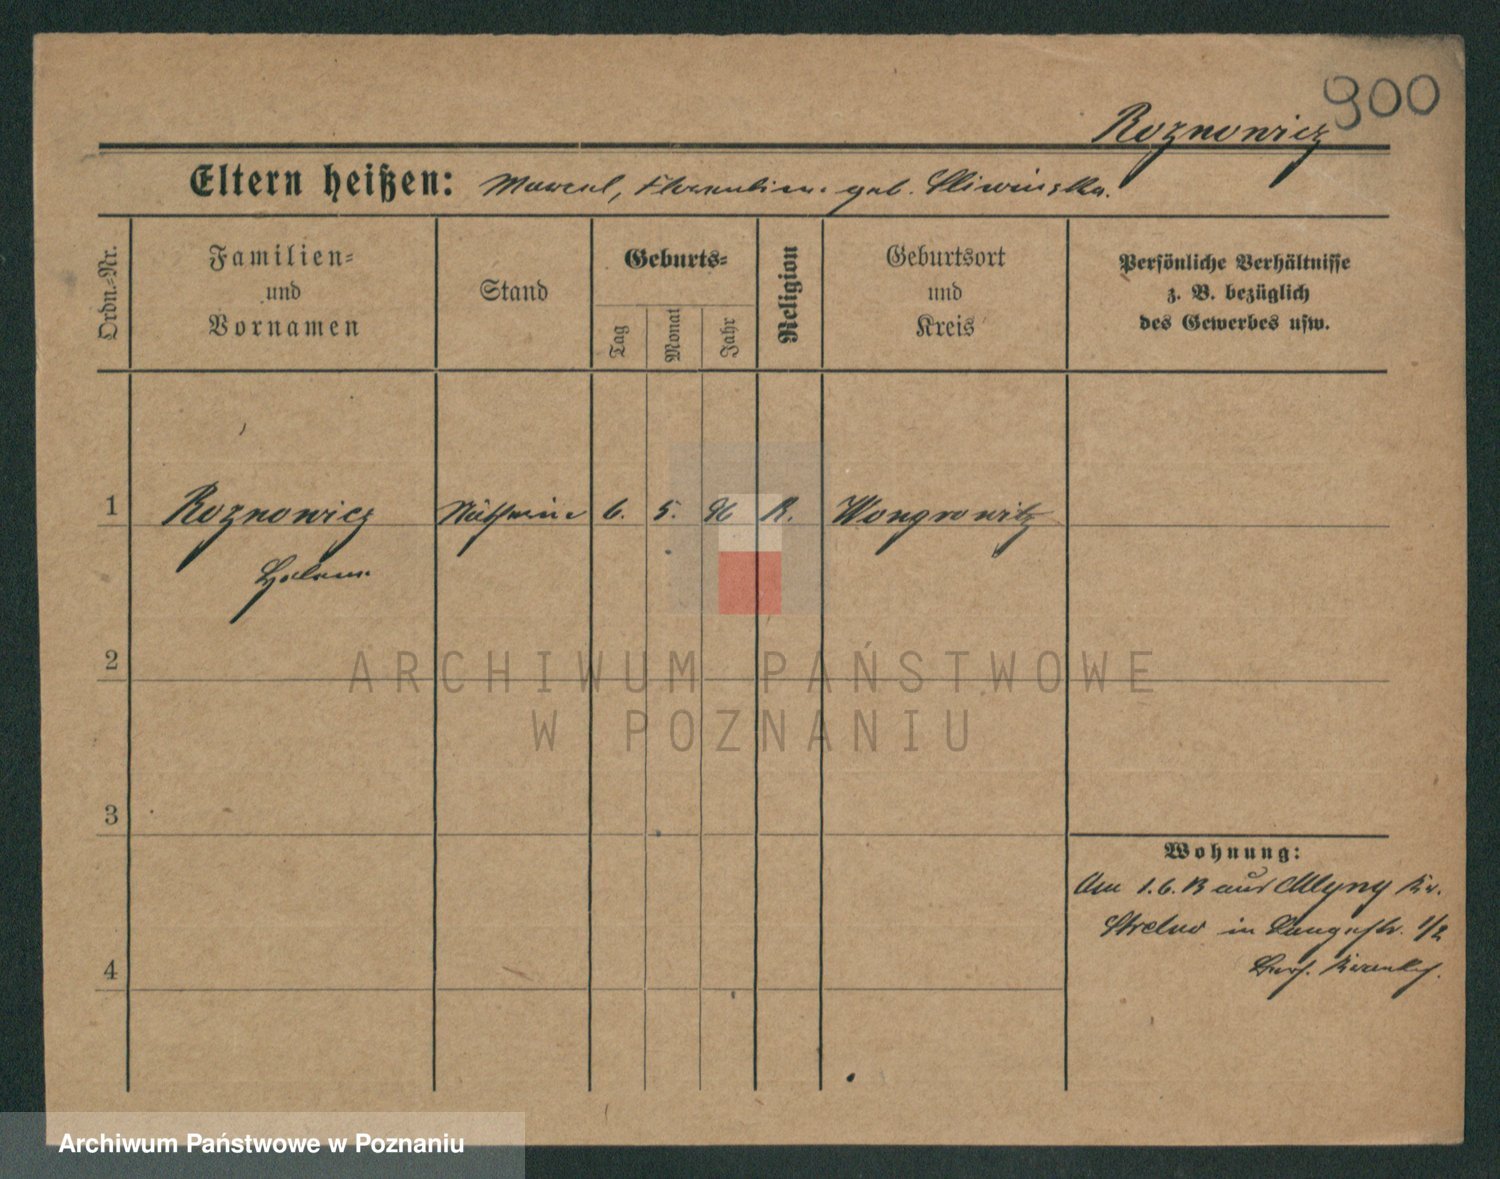 900
Roznowicz
Eltern heißen: Marcel, geb. Sliwinska.
Ordn.-Nr.
Familien-
und
Vornamen
Stand
Geburts-
Tag
Monat
Jahr
Religion
Geburtsort
und
Kreis
Persönliche Verhältnisse
z. B. bezüglich
des Gewerbes usw.
1 Roznowicz Näherin 6. 5. 96 R. Wongrowitz
Helene
2
3
4
Wohnung:
Am 1.6.13 aus Mlyny Kr.
Strelno in Langestr. 1/2
ARCHIWUM PAŃSTWOWE
W POZNANIU
Archiwum Państwowe w Poznaniu